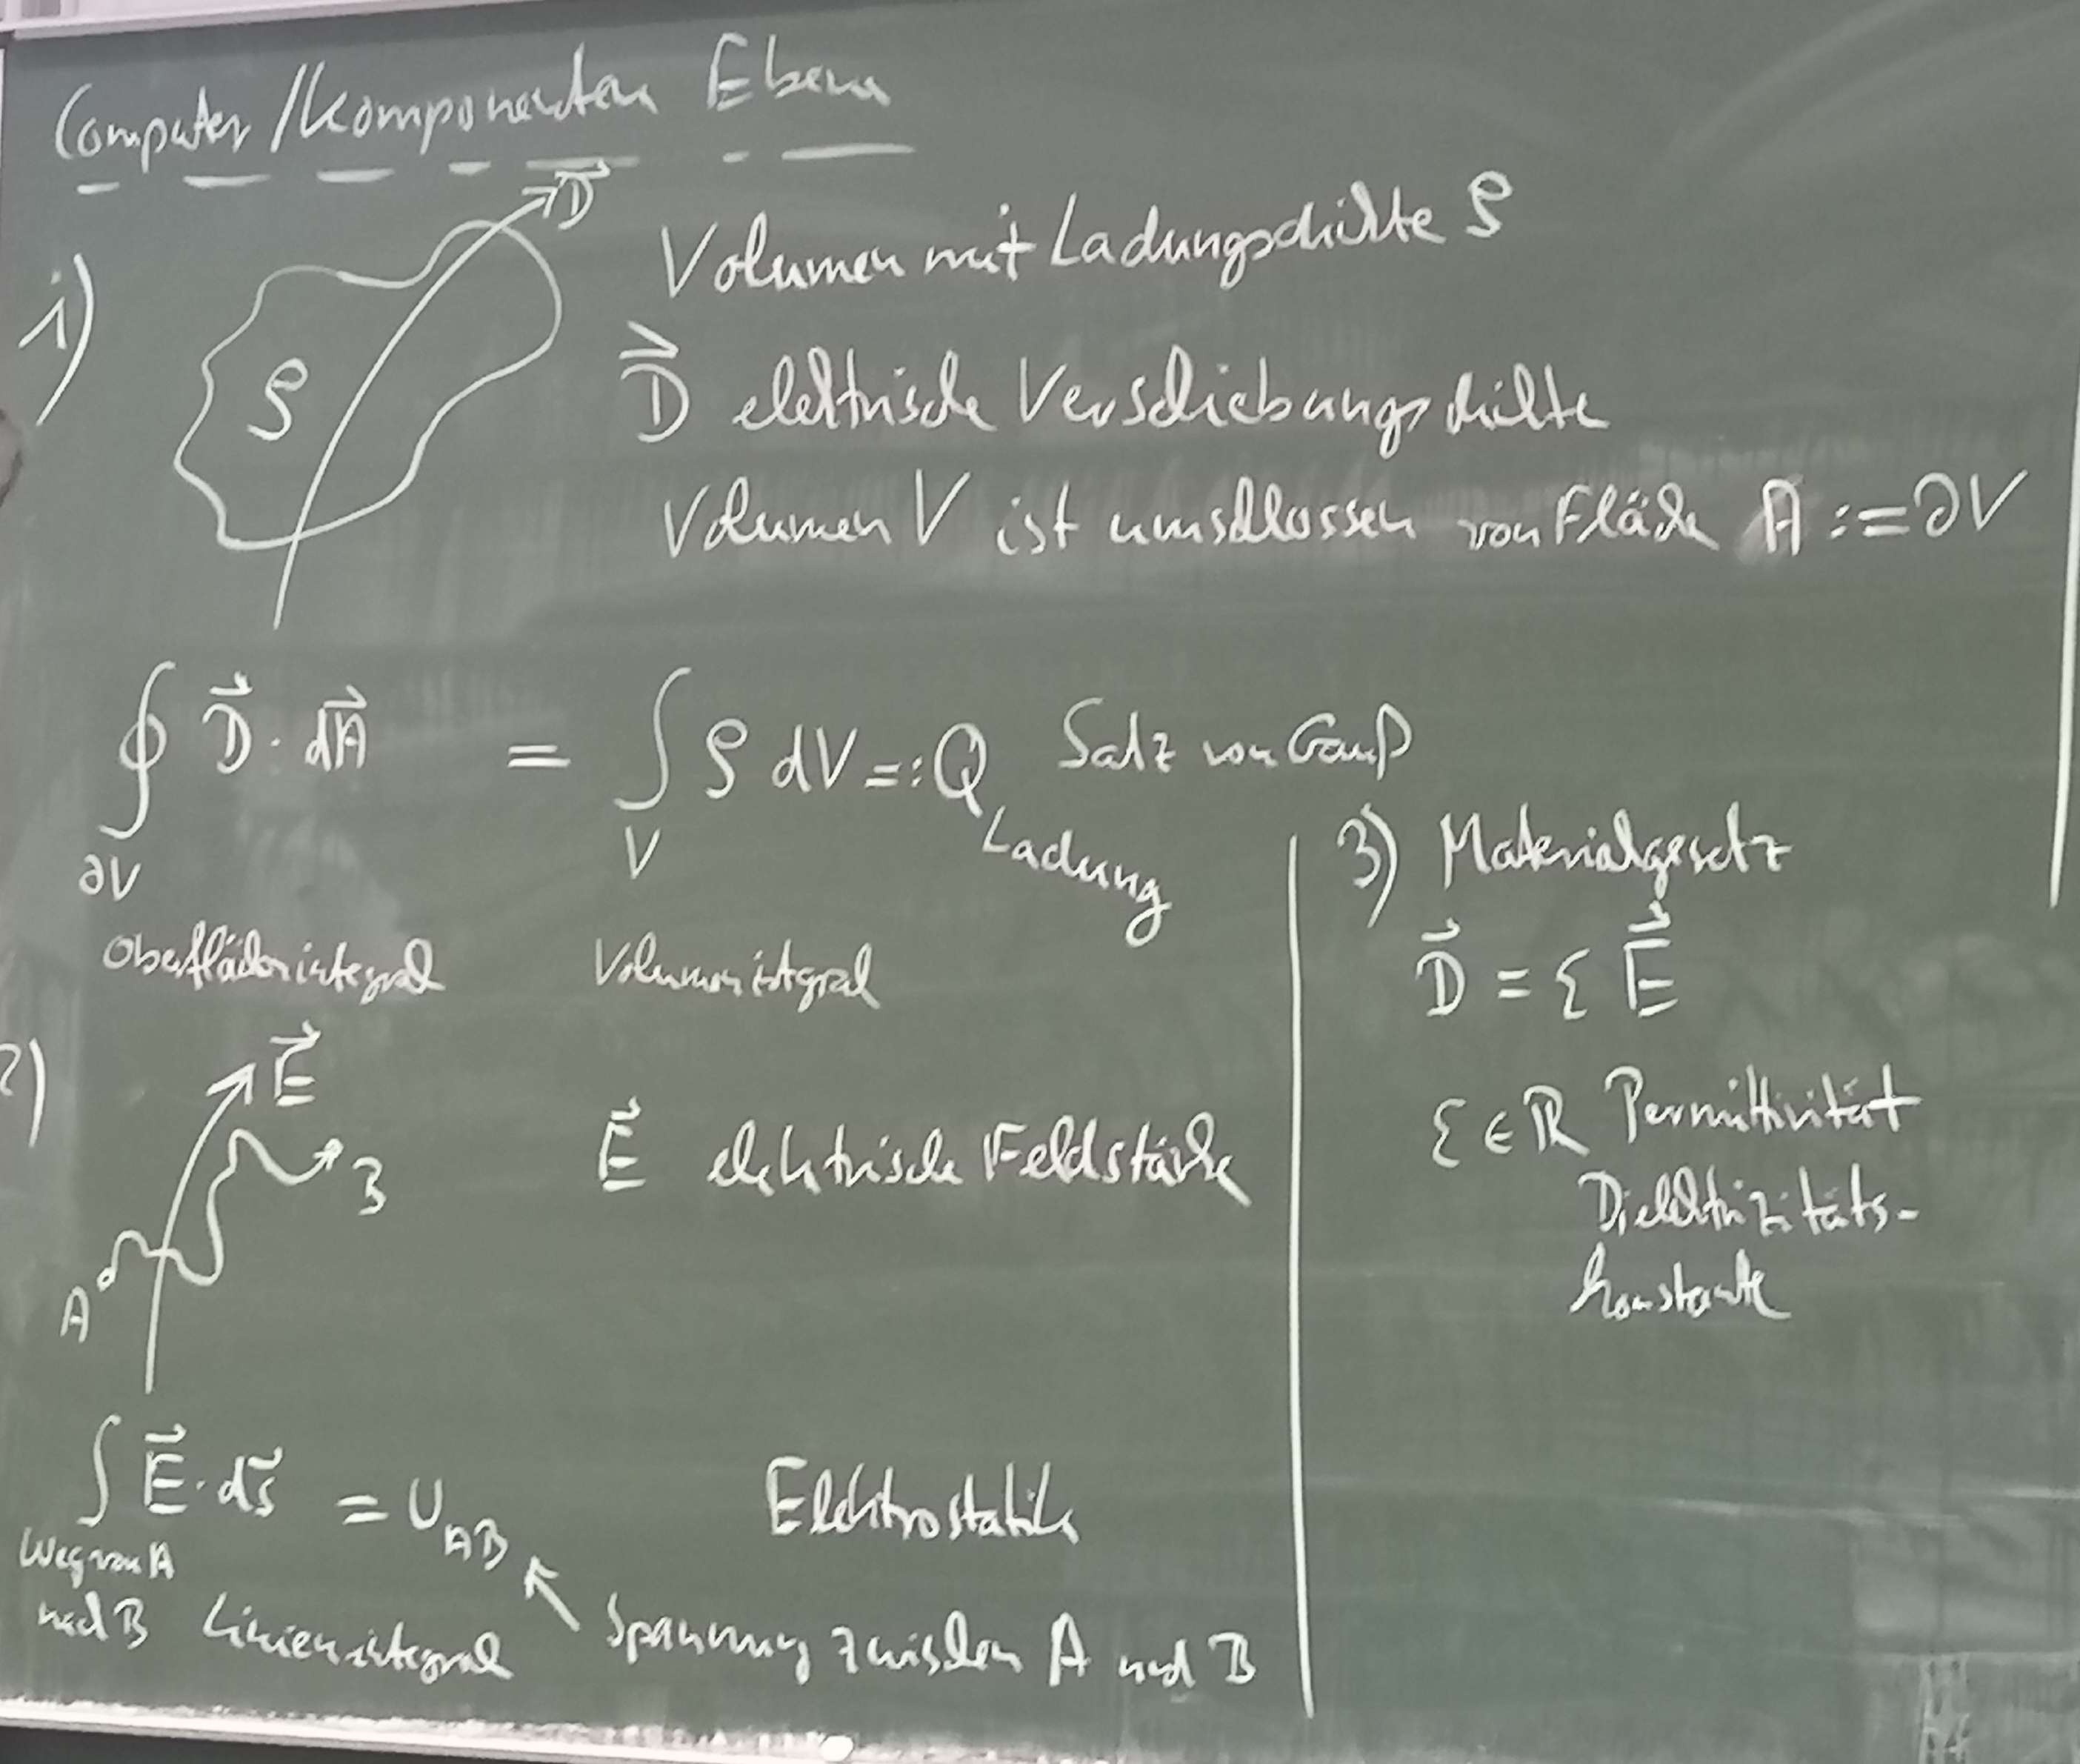 Computer/Komponenten Ebene
1)
D⃗
ρ
Volumen mit Ladungsdichte ρ
D⃗ elektrische Verschiebungsdichte
Volumen V ist umschlossen von Fläche A := ∂V
∮ D⃗ · dA⃗ = ∫ ρ dV =: Q Satz von Gauß
∂V V Ladung
Oberflächenintegral Volumenintegral
2)
E⃗
A
B
E⃗ elektrische Feldstärke
∫ E⃗ · ds⃗ = U_AB Elektrostatik
Weg von A
nach B Linienintegral Spannung zwischen A und B
3) Materialgesetz
D⃗ = ε E⃗
ε ∈ ℝ Permittivität
Dielektrizitäts-
konstante